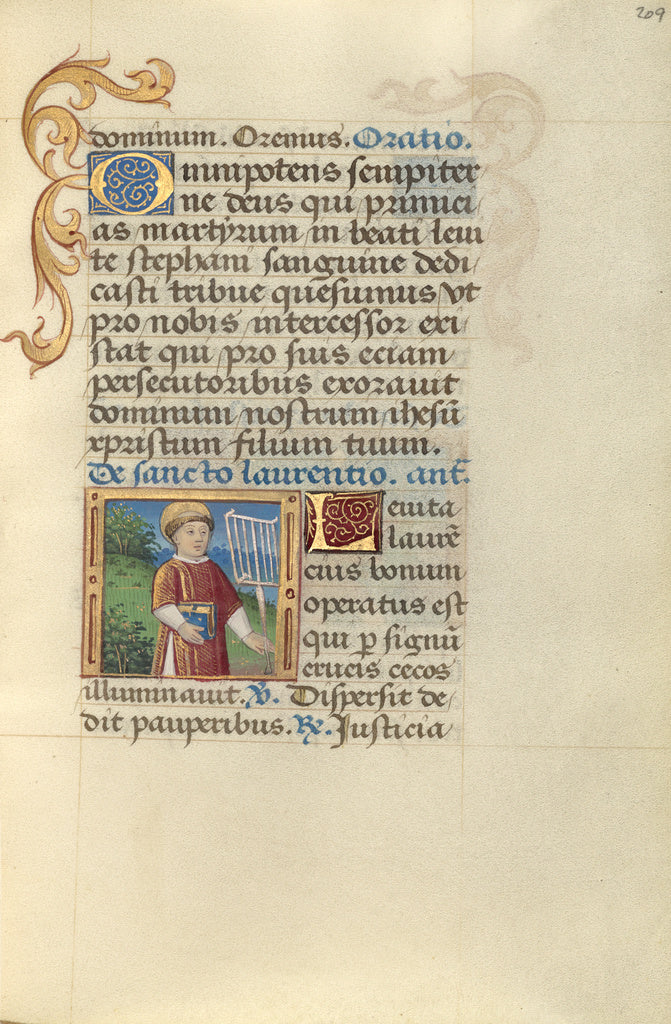 209
dominum. Oremus. Oratio.
Omnipotens sempiter
ne deus qui primici
as martyrum in beati leui
te stephani sanguine dedi
casti tribue quesumus vt
pro nobis intercessor exi
stat qui pro suis eciam
persecutoribus exorauit
dominum nostrum ihesū
xpristum filium tuum.
De sancto laurentio. ant̄.
Leuita
laurē
cius bonum
operatus est
qui ꝑ signū
crucis cecos
illuminauit. ℣. Dispersit de
dit pauperibus. ℟. Justicia